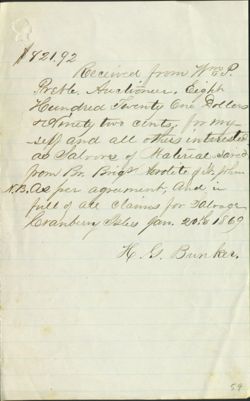 $821.92
Received from Wm P.
Preble, Auctioneer, Eight
Hundred Twenty One Dollars
& Ninety two cents, for my-
self and all others interested
as Salvors of Material saved
from Br. Brig of St John
N.B. As per agreement, And in
full of all claims for Salvage
Cranbury Isles Jan. 20th 1869
H. G. Bunker.
59